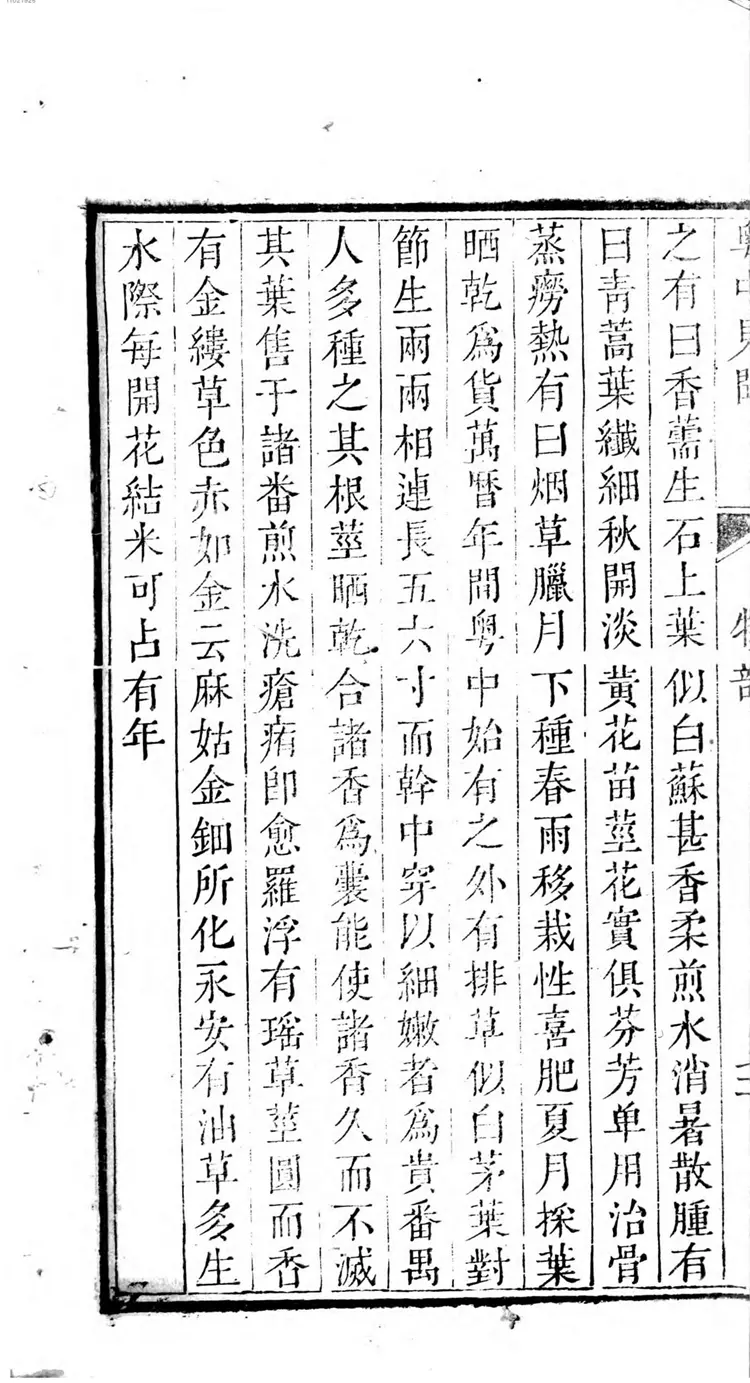 粤中見聞 物部
之有曰香薷生石上葉似白蘇甚香柔煎水消暑散腫有
曰靑蒿葉纖細秋開淡黃花苗莖花實俱芬芳单用治骨
蒸癆熱有曰烟草臘月下種春雨移栽性喜肥夏月採葉
晒乾爲貨萬曆年間粤中始有之外有排草似白茅葉對
節生兩兩相連長五六寸而幹中穿以細嫩者爲貴番禺
人多種之其根莖晒乾合諸香爲囊能使諸香久而不滅
其葉售于諸番煎水洗瘡痏卽愈羅浮有瑶草莖圓而香
有金縷草色赤如金云麻姑金鈿所化永安有油草多生
水際每開花結米可占有年